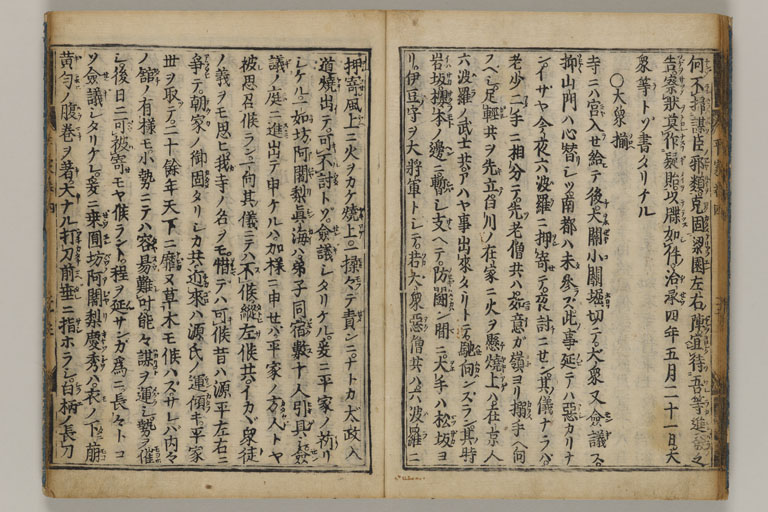 何不掃謀臣邪類克固梁園左右陳道待吾等進發々
告察狀莫作礙貽以牒如件治承四年五月二十一日大
衆等トゾ書タリケル
○大衆揃
寺ニハ宮入セ給テ後大關小關堀切テ大衆又僉議ス
抑山門ハ心替シツ南都ハ未參ズ此事延テハ惡カリナ
ンイザヤ今夜六波羅ニ押寄テ夜討ニセン其儀ナラバ
老少二手ニ相分テ先老僧共ハ如意ガ嶺ヨリ搦手ヘ向
スベシ足輕共ヲ先立白川ノ在家ニ火ヲ懸燒上ハ在京人
六波羅ノ武士共アハヤ事出來タリトテ馳向ンズラン其時
岩坂櫻本ノ邊ニ暫シ支ヘテ防闘ン間ニ大手ハ松坂ヨ
リ伊豆守ヲ大將軍トシテ若大衆惡僧共ハ六波羅ニ
押寄風上ニ火ヲカケ燒上揉々テ責ンニナトカ太政入
道燒出テ可不討トゾ僉議シタリケル爰ニ平家ノ祈リ
シケル一如坊阿闍梨眞海ハ弟子同宿數十人引具シ僉
議ノ庭ニ進出テ申ケルハ加樣ニ申セバ平家ノ方人トヤ
被思召候ラン一向其儀ニテハ不候縱左候共イカヾ衆徒
ノ義ヲモ思ヒ我寺ノ名ヲモ惜デハ可候昔ハ源平左右ニ
爭テ朝家ノ御固タリシカ共近來ハ源氏ノ運傾キ平家
世ヲ取テ二十餘年天下ニ靡ヌ草木モ候ハズサレバ内々
ノ舘ノ有様モ小勢ニテハ容易難叶能々謀ヲ運シ勢ヲ催
シ後日ニ可被寄モヤ候ラント程ヲ延サンガ爲ニ長々トコ
ソ僉議シタリケレ爰ニ乗圓坊阿闍梨慶秀ハ衣ノ下ニ萠
黄匂ノ腹巻ヲ著大ナル打刀前垂ニ指ホラシ白柄ノ長刀